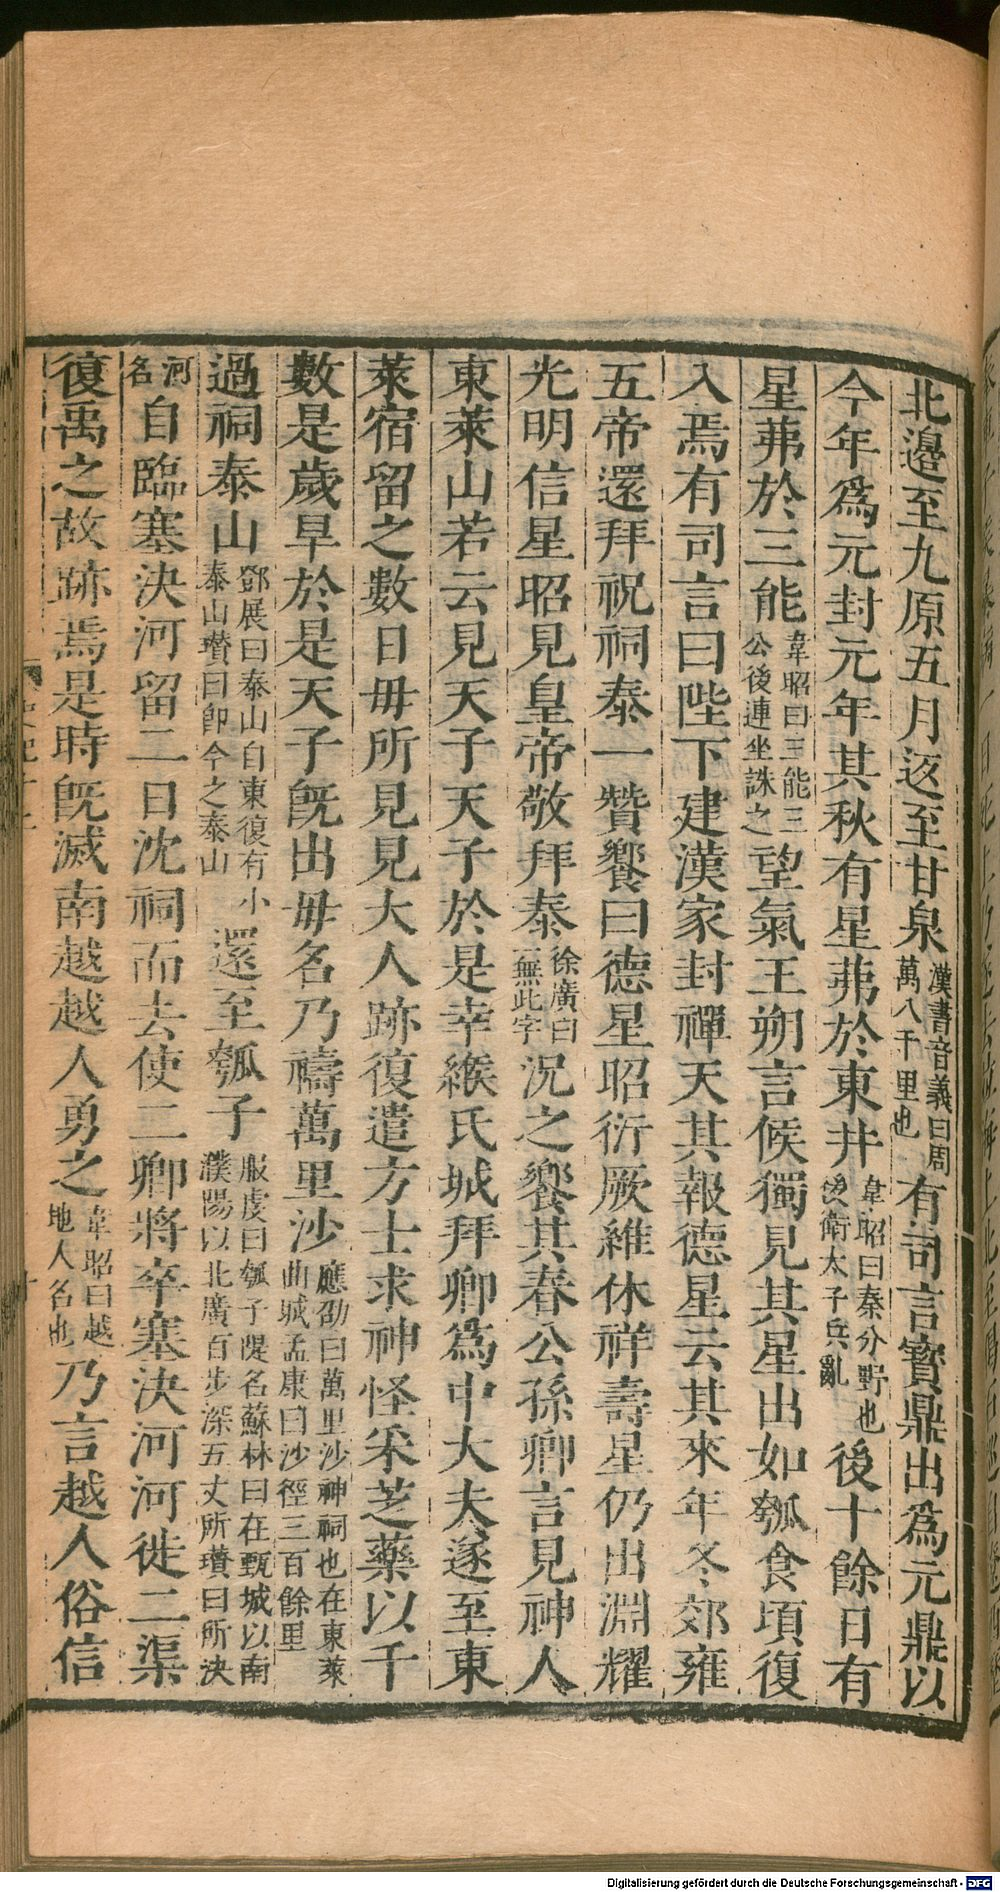 北邉至九原五月返至甘泉漢書音義曰周萬八千里也有司言寳鼎出爲元鼎以
今年爲元封元年其秋有星茀於東井韋昭曰秦分野也後衛太子兵亂後十餘日有
星茀於三能韋昭曰三能三公後連坐誅之望氣王朔言候獨見其星出如瓠食頃復
入焉有司言曰陛下建漢家封禪天其報德星云其來年冬郊雍
五帝還拜祝祠泰一贊饗曰德星昭衍厥維休祥壽星仍出淵耀
光明信星昭見皇帝敬拜泰徐廣曰一無此字況之饗其春公孫卿言見神人
東萊山若云見天子天子於是幸緱氏城拜卿爲中大夫遂至東
萊宿留之數日毋所見見大人跡復遣方士求神怪采芝藥以千
數是歲旱於是天子旣出毋名乃禱萬里沙應劭曰萬里沙神祠也在東萊曲城孟康曰沙徑三百餘里
過祠泰山鄧展曰泰山自東復有小泰山瓚曰卽今之泰山還至瓠子服虔曰瓠子隄名蘇林曰在甄城以南濮陽以北廣百步深五丈所瓚曰所決
河名自臨塞決河留二日沈祠而去使二卿將卒塞決河河徙二渠
復禹之故跡焉是時旣滅南越越人勇之韋昭曰越地人名也乃言越人俗信
Digitalisierung gefördert durch die Deutsche Forschungsgemeinschaft - DFG